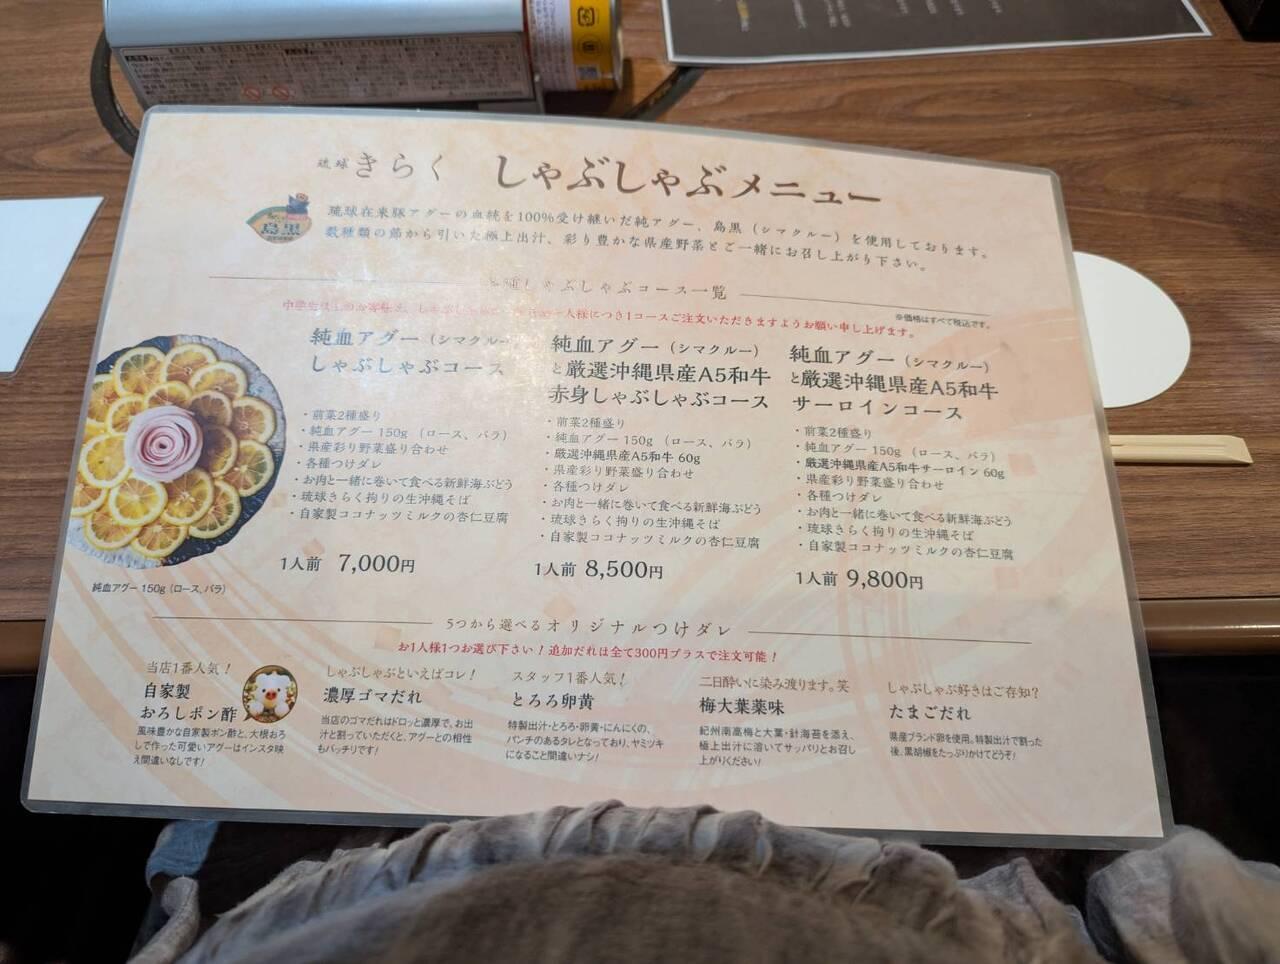 琉球 きらく しゃぶしゃぶメニュー
島黒
琉球在来豚アグーの血統を100%受け継いだ純アグー、島黒（シマクルー）を使用しております。
数種類の節から引いた極上出汁、彩り豊かな県産野菜とご一緒にお召し上がり下さい。
しゃぶしゃぶコース一覧
※価格はすべて税込です。
お一人様につき1コースご注文いただきますようお願い申し上げます。
純血アグー（シマクルー）
しゃぶしゃぶコース
・前菜2種盛り
・純血アグー 150g （ロース、バラ）
・県産彩り野菜盛り合わせ
・各種つけダレ
・お肉と一緒に巻いて食べる新鮮海ぶどう
・琉球きらく拘りの生沖縄そば
・自家製ココナッツミルクの杏仁豆腐
1人前 7,000円
純血アグー（シマクルー）
と厳選沖縄県産A5和牛
赤身しゃぶしゃぶコース
・前菜2種盛り
・純血アグー 150g （ロース、バラ）
・厳選沖縄県産A5和牛 60g
・県産彩り野菜盛り合わせ
・各種つけダレ
・お肉と一緒に巻いて食べる新鮮海ぶどう
・琉球きらく拘りの生沖縄そば
・自家製ココナッツミルクの杏仁豆腐
1人前 8,500円
純血アグー（シマクルー）
と厳選沖縄県産A5和牛
サーロインコース
・前菜2種盛り
・純血アグー 150g （ロース、バラ）
・厳選沖縄県産A5和牛サーロイン 60g
・県産彩り野菜盛り合わせ
・各種つけダレ
・お肉と一緒に巻いて食べる新鮮海ぶどう
・琉球きらく拘りの生沖縄そば
・自家製ココナッツミルクの杏仁豆腐
1人前 9,800円
純血アグー 150g（ロース、バラ）
5つから選べるオリジナルつけダレ
お1人様1つお選び下さい！追加だれは全て300円プラスで注文可能！
当店1番人気！
自家製
おろしポン酢
風味豊かな自家製ポン酢と、大根おろ
しで作った可愛いアグーはインスタ映
え間違いなしです！
しゃぶしゃぶといえばコレ！
濃厚ゴマだれ
当店のゴマだれはドロッと濃厚で、お出
汁と割っていただくと、アグーとの相性
もバッチリです！
スタッフ1番人気！
とろろ卵黄
特製出汁・とろろ・卵黄・にんにくの、
パンチのあるタレとなっており、ヤミツキ
になること間違いナシ！
二日酔いに染み渡ります。笑
梅大葉薬味
紀州南高梅と大葉・針海苔を添え、
極上出汁に溶いてサッパリとお召し
上がりください！
しゃぶしゃぶ好きはご存知？
たまごだれ
県産ブランド卵を使用。特製出汁で割った
後、黒胡椒をたっぷりかけてどうぞ！